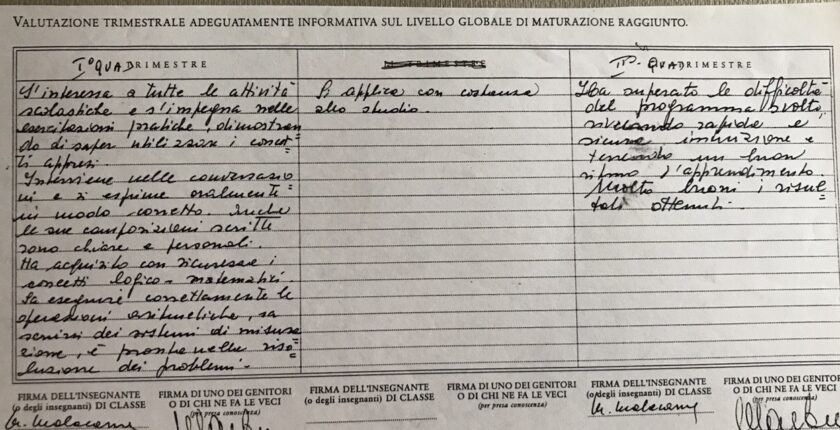 VALUTAZIONE TRIMESTRALE ADEGUATAMENTE INFORMATIVA SUL LIVELLO GLOBALE DI MATURAZIONE RAGGIUNTO.
I° QUADRIMESTRE
S'interessa a tutte le attività
scolastiche e s'impegna nelle
esercitazioni pratiche, dimostran
do di saper utilizzare i concet=
ti appresi.
Interviene nelle conversazio=
ni e si esprime oralmente
in modo corretto. Anche
le sue composizioni scritte
sono chiare e personali.
Ha acquisito con sicurezza i
concetti logico-matematici.
Sa eseguire correttamente le
operazioni aritmetiche, sa
servirsi dei sistemi di misura
zione, è pronta nella riso=
luzione dei problemi.
TRIMESTRE
Si applica con costanza
allo studio
II° QUADRIMESTRE
Ha superato le difficoltà
del programma svolto,
rivelando rapida e
sicura intuizione e
tenendo un buon
ritmo d'apprendimento.
Molto buoni i risul=
tati ottenuti.
FIRMA DELL'INSEGNANTE
(o degli insegnanti) DI CLASSE
FIRMA DI UNO DEI GENITORI
O DI CHI NE FA LE VECI
(per presa conoscenza)
FIRMA DELL'INSEGNANTE
(o degli insegnanti) DI CLASSE
FIRMA DI UNO DEI GENITORI
O DI CHI NE FA LE VECI
(per presa conoscenza)
FIRMA DELL'INSEGNANTE
(o degli insegnanti) DI CLASSE
FIRMA DI UNO DEI GENITORI
O DI CHI NE FA LE VECI
(per presa conoscenza)